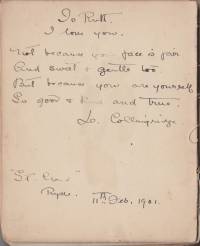 To Ruth.
I love you.
Not because your face is fair
And sweet & gentle too.
But because you are yourself
So good & kind and true.
L. Collingridge
Ryde.
11th Feb. 1901.